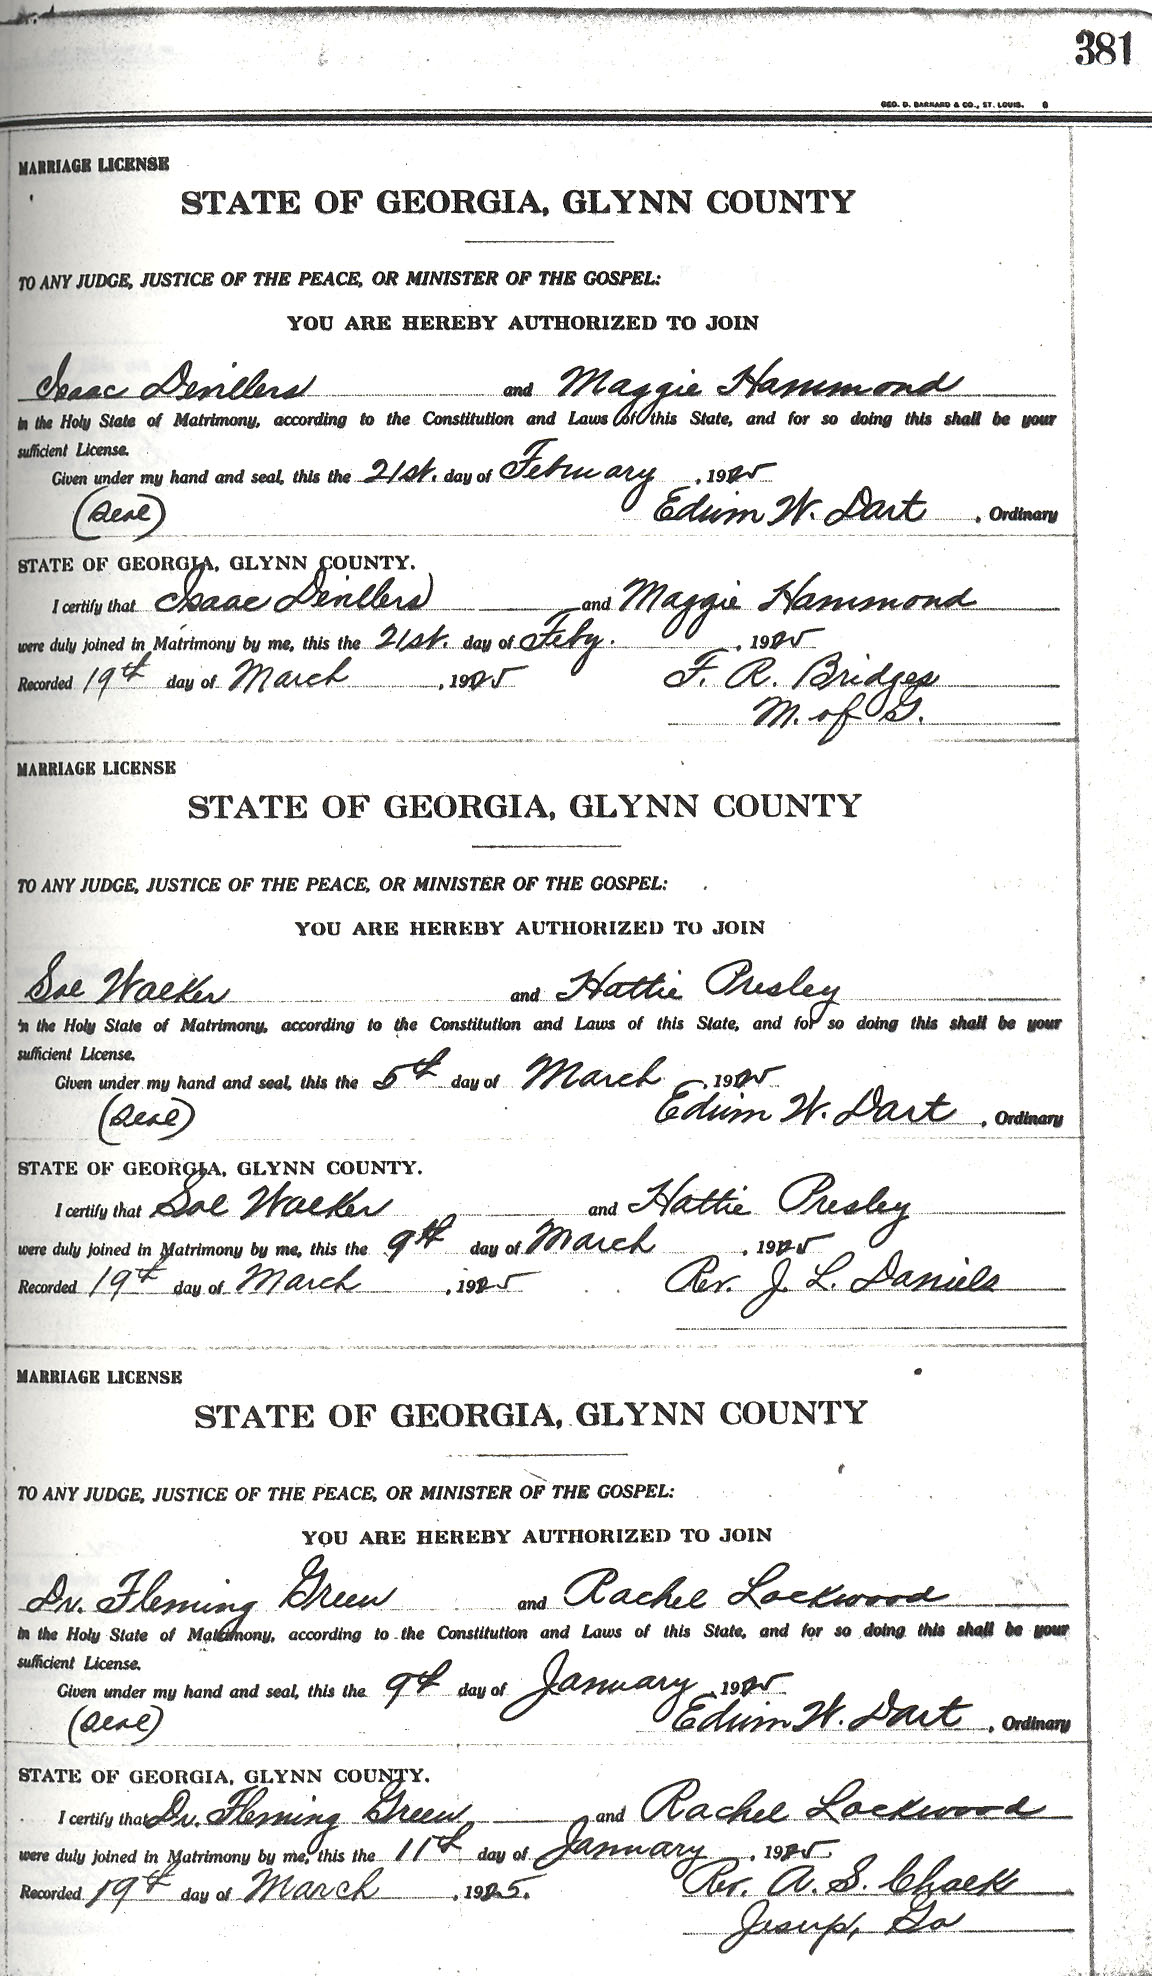 381
GEO. D. BARNARD & CO., ST. LOUIS. 6
MARRIAGE LICENSE
STATE OF GEORGIA, GLYNN COUNTY
TO ANY JUDGE, JUSTICE OF THE PEACE, OR MINISTER OF THE GOSPEL:
YOU ARE HEREBY AUTHORIZED TO JOIN
Isaac Devillers and Maggie Hammond
in the Holy State of Matrimony, according to the Constitution and Laws of this State, and for so doing this shall be your
sufficient License.
Given under my hand and seal, this the 21st. day of February, 1925
(Seal) Edwin W. Dart, Ordinary
STATE OF GEORGIA, GLYNN COUNTY.
I certify that Isaac Devillers and Maggie Hammond
were duly joined in Matrimony by me, this the 21st. day of Feby., 1925
Recorded 19th day of March, 1925 F. R. Bridges
M. of G.
MARRIAGE LICENSE
STATE OF GEORGIA, GLYNN COUNTY
TO ANY JUDGE, JUSTICE OF THE PEACE, OR MINISTER OF THE GOSPEL:
YOU ARE HEREBY AUTHORIZED TO JOIN
Sol Walker and Hattie Presley
in the Holy State of Matrimony, according to the Constitution and Laws of this State, and for so doing this shall be your
sufficient License.
Given under my hand and seal, this the 5th day of March, 1925
(Seal) Edwin W. Dart, Ordinary
STATE OF GEORGIA, GLYNN COUNTY.
I certify that Sol Walker and Hattie Presley
were duly joined in Matrimony by me, this the 9th day of March, 1925
Recorded 19th day of March, 1925 Rev. J. L. Daniels
MARRIAGE LICENSE
STATE OF GEORGIA, GLYNN COUNTY
TO ANY JUDGE, JUSTICE OF THE PEACE, OR MINISTER OF THE GOSPEL:
YOU ARE HEREBY AUTHORIZED TO JOIN
Dr. Fleming Green and Rachel Lockwood
in the Holy State of Matrimony, according to the Constitution and Laws of this State, and for so doing this shall be your
sufficient License.
Given under my hand and seal, this the 9th day of January, 1925
(Seal) Edwin W. Dart, Ordinary
STATE OF GEORGIA, GLYNN COUNTY.
I certify that Dr. Fleming Green and Rachel Lockwood
were duly joined in Matrimony by me, this the 11th day of January, 1925.
Recorded 19th day of March, 1925. Rev. A. S. Chalk
Jesup, Ga